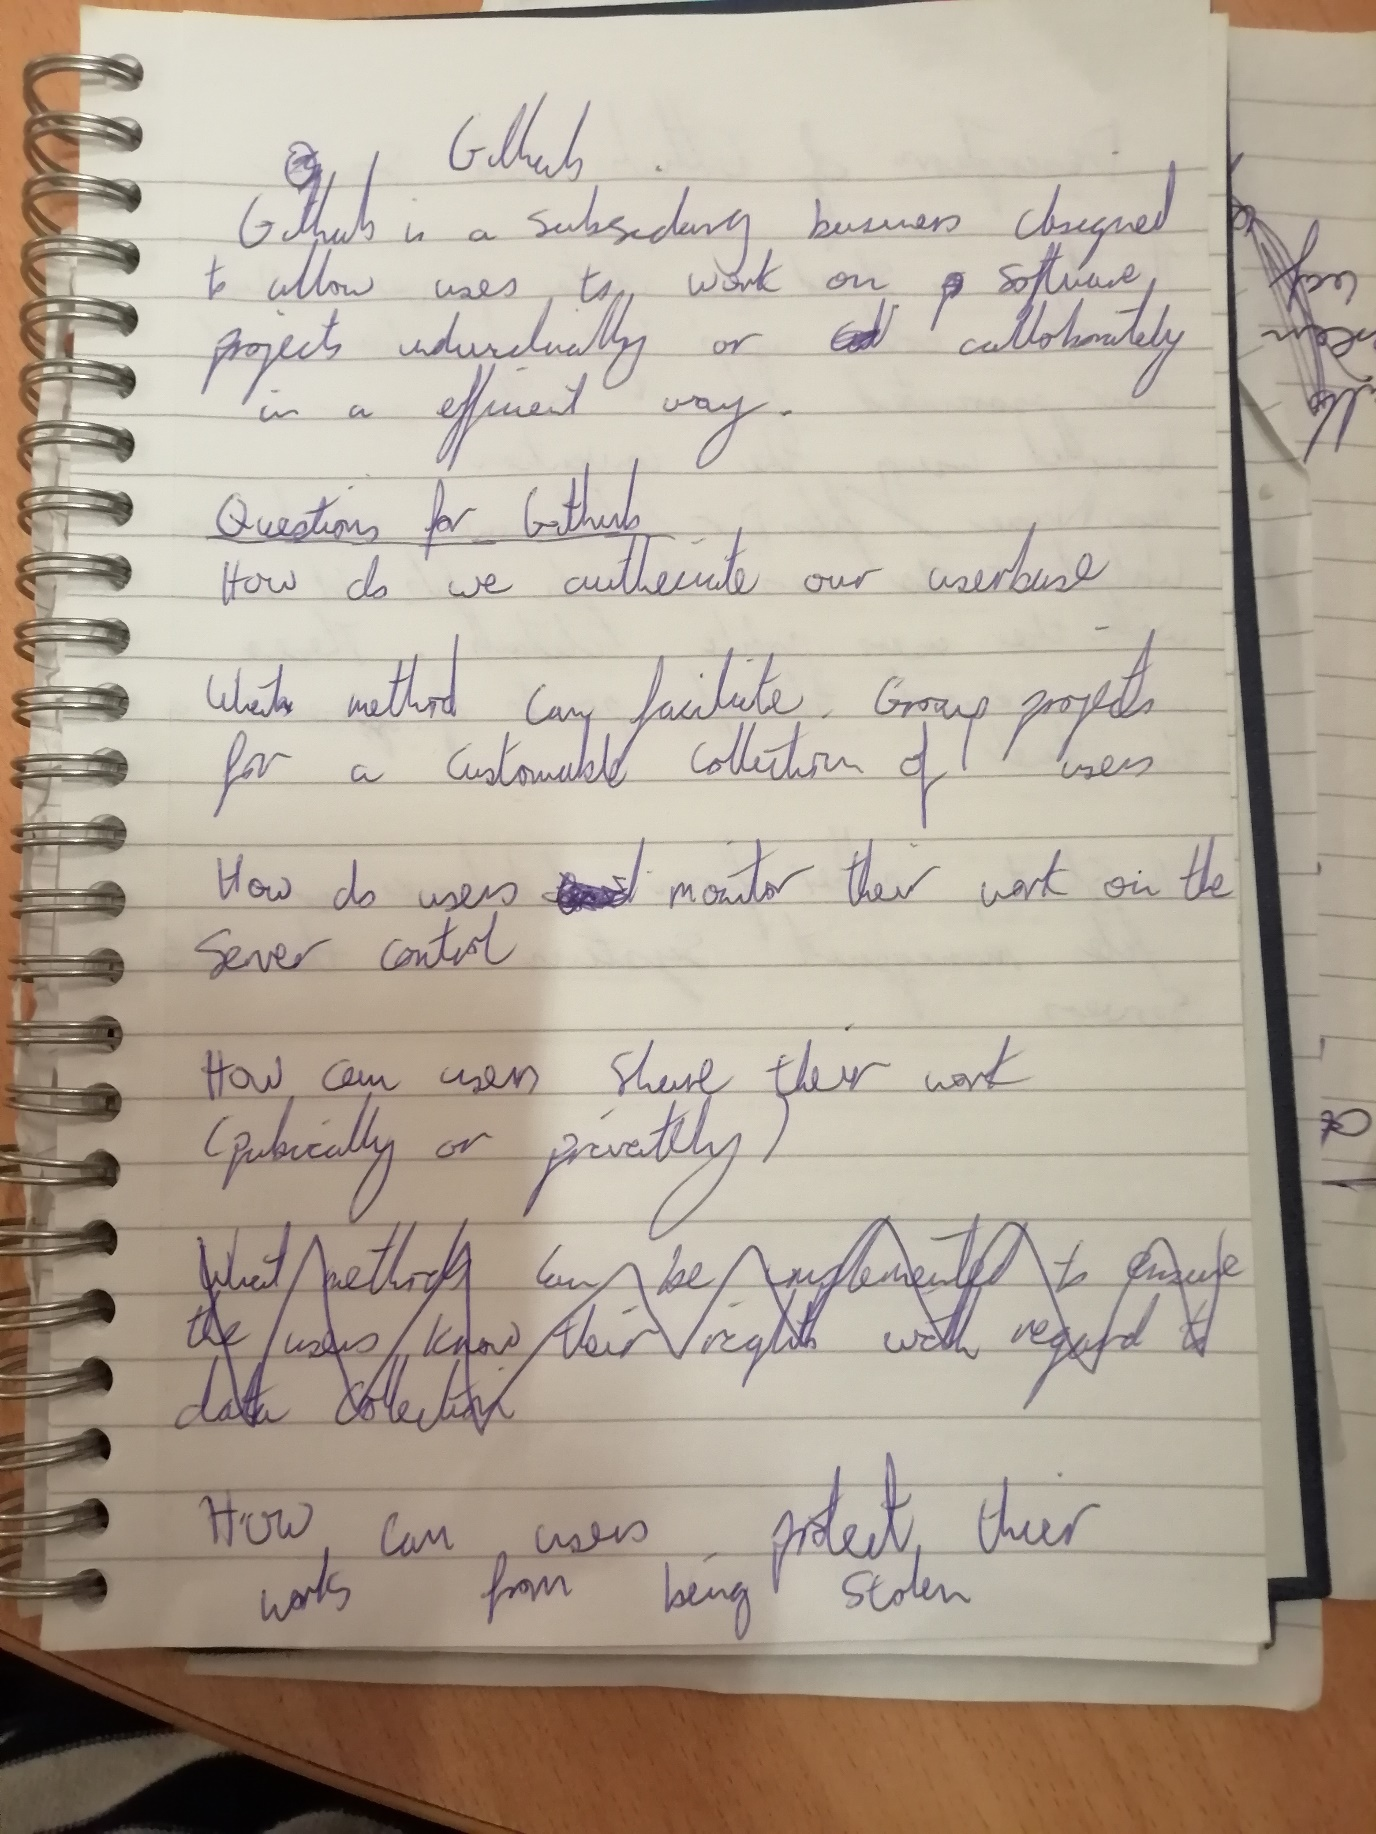 Github
Github is a subsiduary business designed
to allow uses to work on software
projects induvidually or collaborately
in a efficient way.
Questions for Github
How do we autheniate our userbase
What method can facilitate Group projects
for a customable collection of users
How do users monitor their work on the
Server control
How can users share their work
(pubically or privately)
What methods can be implemented to ensure
the users know their rights with regard to
data collection
How can users protect thier
works from being stolen